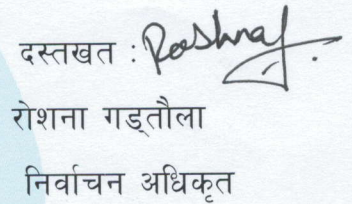 दस्तखत : Roshna
रोशना गड्तौला
निर्वाचन अधिकृत